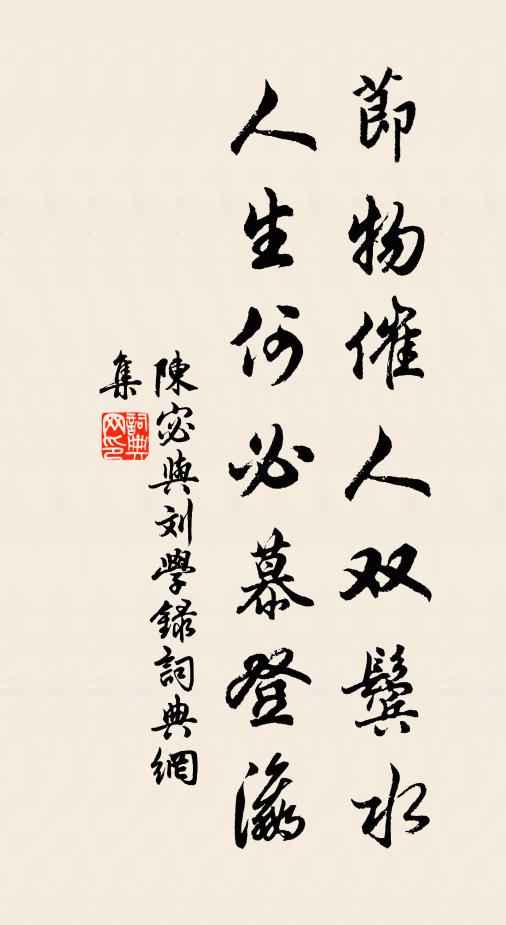 節物催人双鬢水
人生何必慕登瀛
陳宓與刘學録詞典網
集
詞典
网印